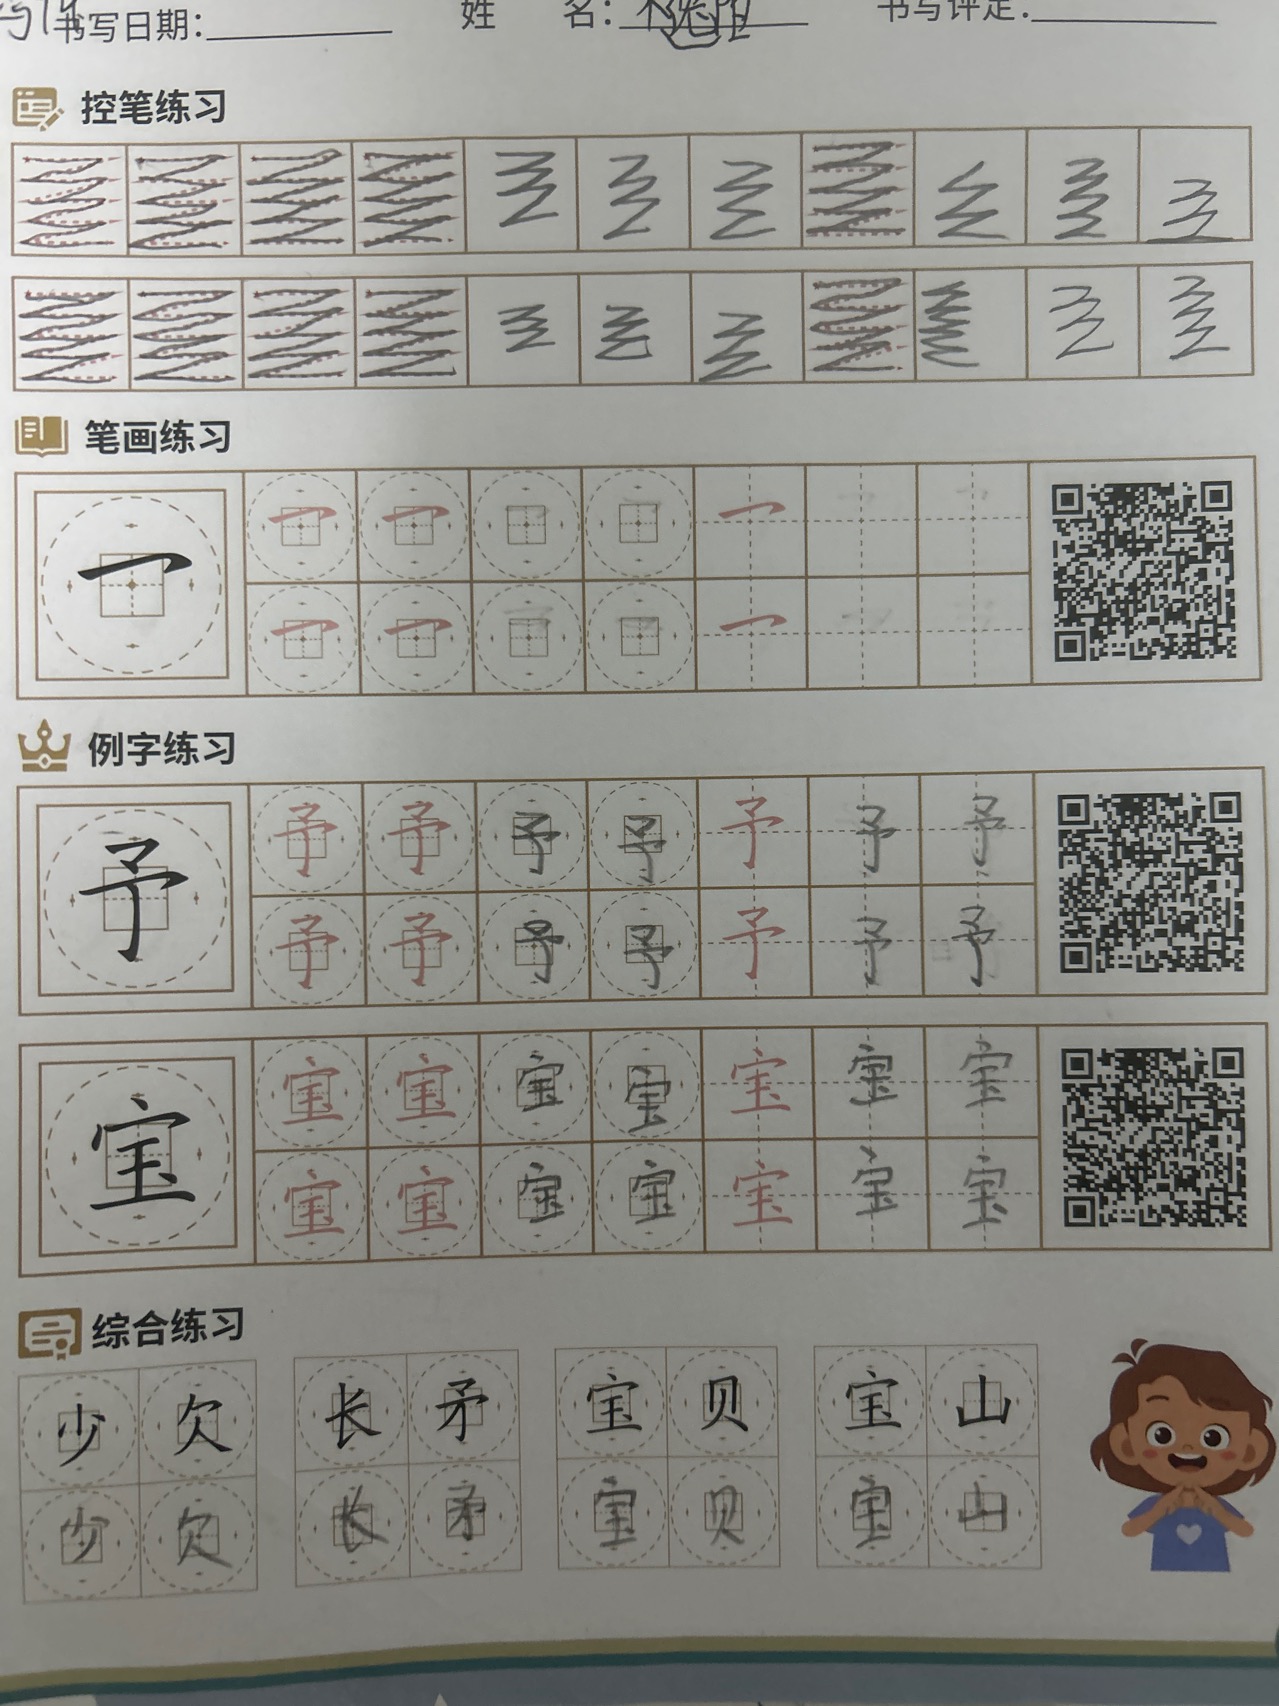 书写日期： 姓 名： 书写评定：
控笔练习
笔画练习
㇖ ㇖ ㇖ ㇖
㇖ ㇖ ㇖
例字练习
予 予 予 予 予 予 予 予
予 予 予 予 予 予 予
宝 宝 宝 宝 宝 宝 宝 宝
宝 宝 宝 宝 宝 宝 宝
综合练习
少 欠 长 矛 宝 贝 宝 山
少 欠 长 矛 宝 贝 宝 山